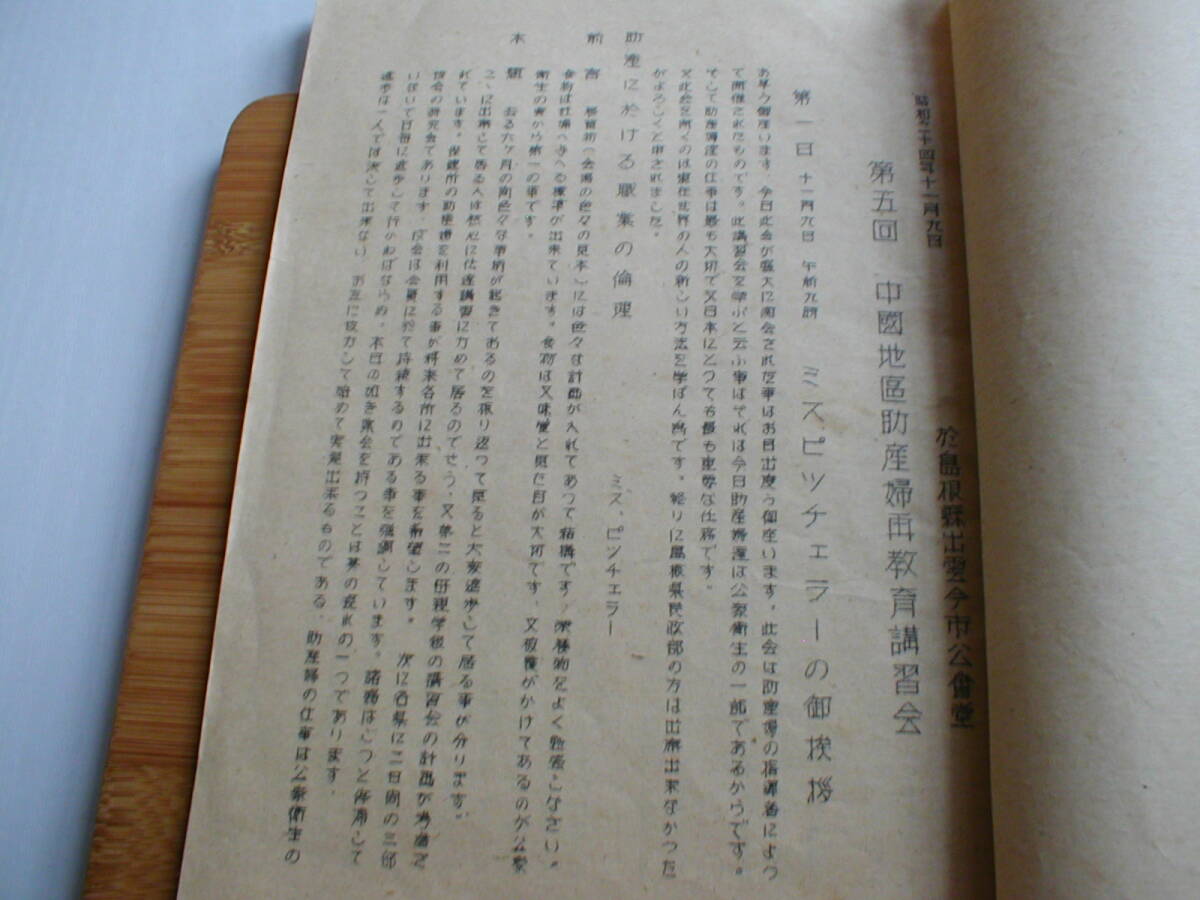 昭和二十四年十一月九日
於島根縣出雲今市公會堂
第五回 中國地區助産婦再教育講習会
第一日 十一月九日 午前九時 ミスピッチェラーの御挨拶
お早う御座います、今日此会が盛大に開会された事はお目出度う御座います。此会は助産婦の指導者によつ
て開催されたものです。此講習会を学ぶと云ふ事はそれは今日助産婦達は公衆衛生の一部であるからです。
そして助産婦の仕事は最も大切で又日本にとつても最も重要な仕務です。
又此会を開くのは現在世界の人の新しい方法を学ばん為です。終りに島根県民政部の方は出席出来なかつた
がよろしくと申されました。
助産に於ける職業の倫理
ミス、ピッチェラー
前言 展覧符(会場の色々の見本)には色々な計画が入れてあつて結構です、栄養物をよく勉強しなさい。
食物は妊婦へ与へる標準が出来ています。食物は又味覚と見た目が大切です、又被覆がかけてあるのが公衆
衛生の考から第一の事です。
本題 去る六ヶ月の間色々な事柄が起きてあるのを振り返つて見ると大変進歩して居る事が分ります。
こゝに出席して居る人は熱心に伝達講習に力めて居るのでせう、又第二の母親学級の講習会の計画が考慮さ
れています。保健所の助産婦を利用する事が将来各所に出来る事を希望します。 次に各県に二日間の三部
役会の研究会であります。役会は会員に於て持続するのである事を強調しています。諸務はじつと停滞して
いないで日毎に進歩して行かねばならぬ、本日の如き集会を持つことは夢の現れの一つであります、
進歩は一人では決して出来ない お互に協力して始めて実現出来るものである、助産婦の仕事は公衆衛生の